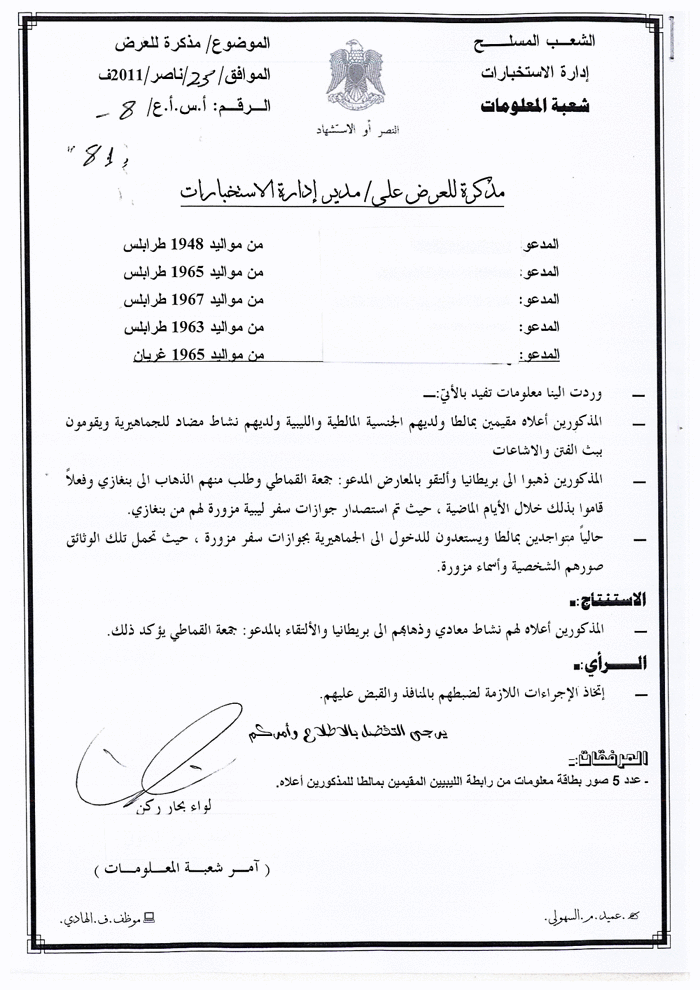 الشعب المسلح
إدارة الاستخبارات
شعبة المعلومات
النصر أو الاستشهاد
الموضوع/ مذكرة للعرض
الموافق/23/ناصر/2011ف
الرقم: أ.س.أ.ع/ 8 -
مذكرة للعرض على/ مدير إدارة الاستخبارات
المدعو: من مواليد 1948 طرابلس
المدعو: من مواليد 1965 طرابلس
المدعو: من مواليد 1967 طرابلس
المدعو: من مواليد 1963 طرابلس
المدعو: من مواليد 1965 غريان
ــ وردت الينا معلومات تفيد بالأتي:ــ
ــ المذكورين أعلاه مقيمين بمالطا ولديهم الجنسية المالطية والليبية ولديهم نشاط مضاد للجماهيرية ويقومون
ببث الفتن والاشاعات
ــ المذكورين ذهبوا الى بريطانيا وألتقو بالمعارض المدعو: جمعة القماطي وطلب منهم الذهاب الى بنغازي وفعلاً
قاموا بذلك خلال الأيام الماضية ، حيث تم استصدار جوازات سفر ليبية مزورة لهم من بنغازي.
ــ حالياً متواجدين بمالطا ويستعدون للدخول الى الجماهيرية بجوازات سفر مزورة ، حيث تحمل تلك الوثائق
صورهم الشخصية وأسماء مزورة.
الاستنتاج:ـ
ــ المذكورين أعلاه لهم نشاط معادي وذهابهم الى بريطانيا والألتقاء بالمدعو: جمعة القماطي يؤكد ذلك.
الــرأي:ـ
ــ إتخاذ الإجراءات اللازمة لضبطهم بالمنافذ والقبض عليهم.
يرجى التفضل بالاطلاع وأمركم
المرفقات:ـ
- عدد 5 صور بطاقة معلومات من رابطة الليبيين المقيمين بمالطا للمذكورين أعلاه.
لواء بحار ركن
( آمر شعبة المعلومات )
عميد.م.السهولي.
موظف.ف.الهادي.